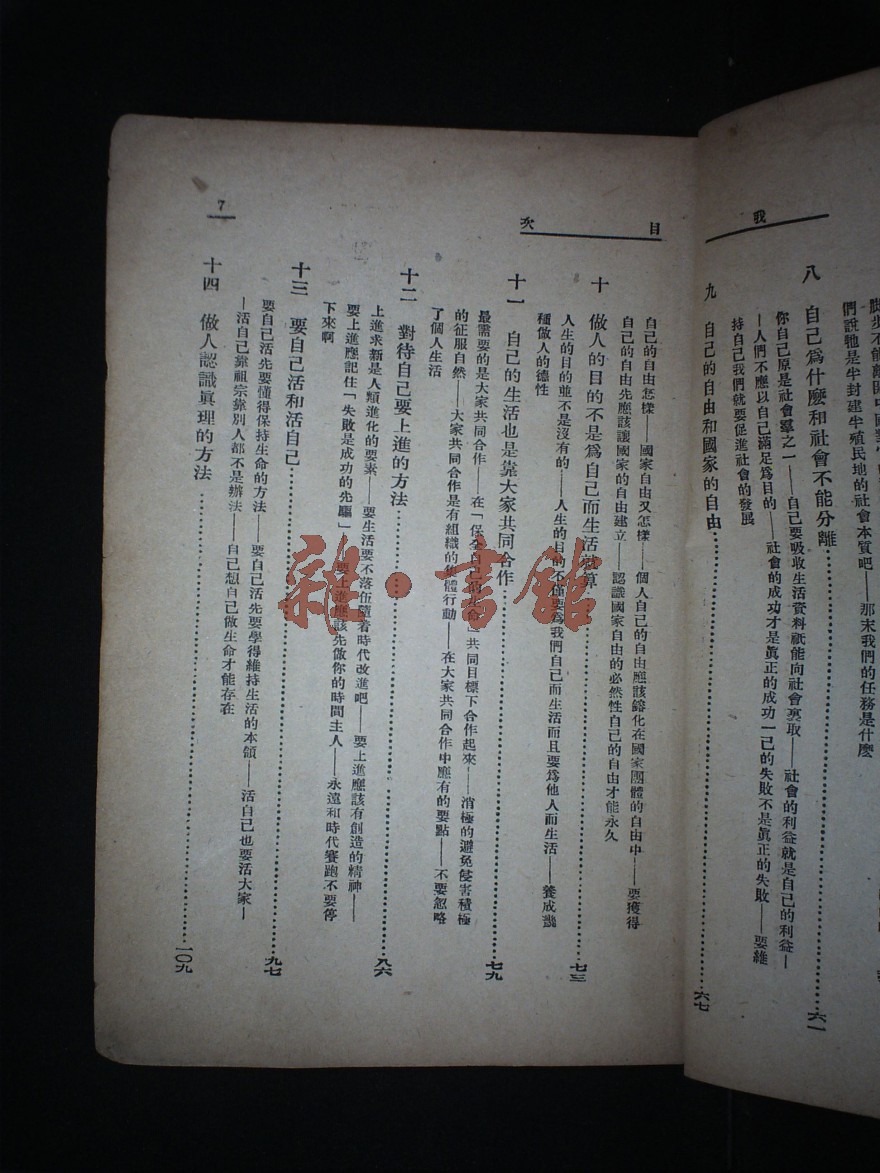 我
們說牠是半封建半殖民地的社會本質吧——那末我們的任務是什麽
八 自己爲什麽和社會不能分離……六一
你自己原是社會羣之一——自己要吸收生活資料祇能向社會裏取——社會的利益就是自己的利益—
—人們不應以自己滿足爲目的——社會的成功才是眞正的成功一己的失敗不是眞正的失敗——要維
持自己我們就要促進社會的發展
九 自己的自由和國家的自由……六七
目 次
自己的自由怎樣——國家自由又怎樣——個人自己的自由應該鎔化在國家團體的自由中——要獲得
自己的自由先應該讓國家的自由建立——認識國家自由的必然性自己的自由才能永久
十 做人的目的不是爲自己而生活就算……七三
人生的目的並不是沒有的——人生的目的不僅要爲我們自己而生活而且要爲他人而生活——養成
種做人的德性
十一 自己的生活也是靠大家共同合作……七九
最需要的是大家共同合作——在「保全自己的生命」共同目標下合作起來——消極的避免侵害積極
的征服自然——大家共同合作是有組織的集體行動——在大家共同合作中應有的要點——不要忽略
了個人生活
十二 對待自己要上進的方法……八六
上進求新是人類進化的要素——要生活要不落伍隨着時代改進吧——要上進應該有創造的精神——
要上進應記住「失敗是成功的先驅」——要上進應該先做你的時間主人——永遠和時代賽跑不要停
下來啊
十三 要自己活和活自己……九七
要自己活先要懂得保持生命的方法——要自己活先要學得維持生活的本領——活自己也要活大家—
—活自己靠祖宗靠別人都不是辦法——自己想自己做生命才能存在
十四 做人認識眞理的方法……一〇九
7
雜·書館